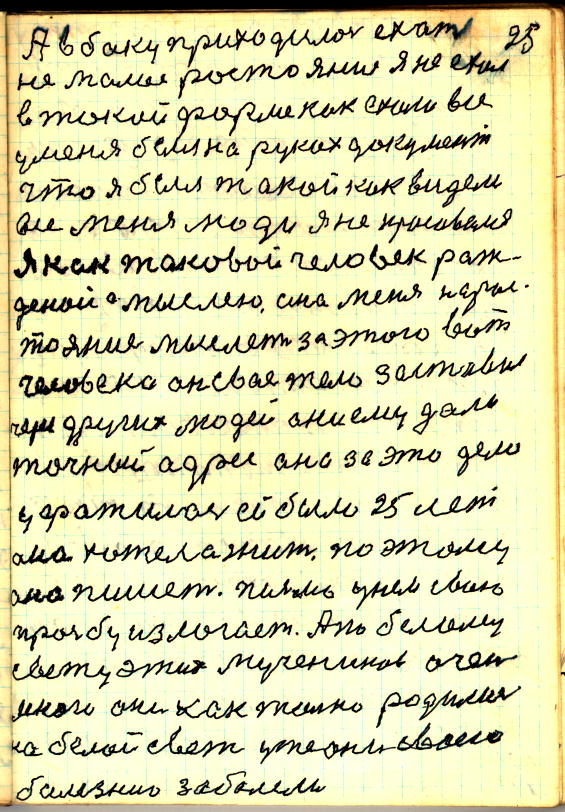 А в баку приходилос ехат 25
не малае ростояние я не ехал
в такой форме как ехали все
у меня был на руках документ
что я был такой как видели
все меня люди я не
я как таковой человек раж-
деной мыслею, она меня на рас-
тояние мыслет за этого вот
человека он свае тело заставил
через других людей они ему дали
точный адрес она за это дело
ей было 25 лет
она хотела жит. поэтому
она пишет. писмо у нем свою
прозбу излогает. А по белому
свету этих мучеников очен
много они как толко родилис
на белой свет уже они своею
болезнию заболели